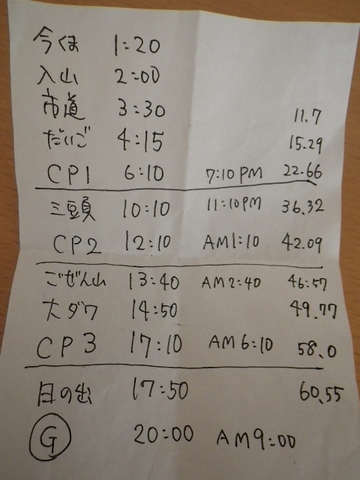 今くま 1:20
入山 2:00
市道 3:30 11.7
だいご 4:15 15.29
CP1 6:10 7:10PM 22.66
三頭 10:10 11:10PM 36.32
CP2 12:10 AM1:10 42.09
ごぜん山 13:40 AM2:40 46:57
大ダワ 14:50 49.77
CP3 17:10 AM6:10 58.0
日の出 17:50 60.55
G 20:00 AM9:00